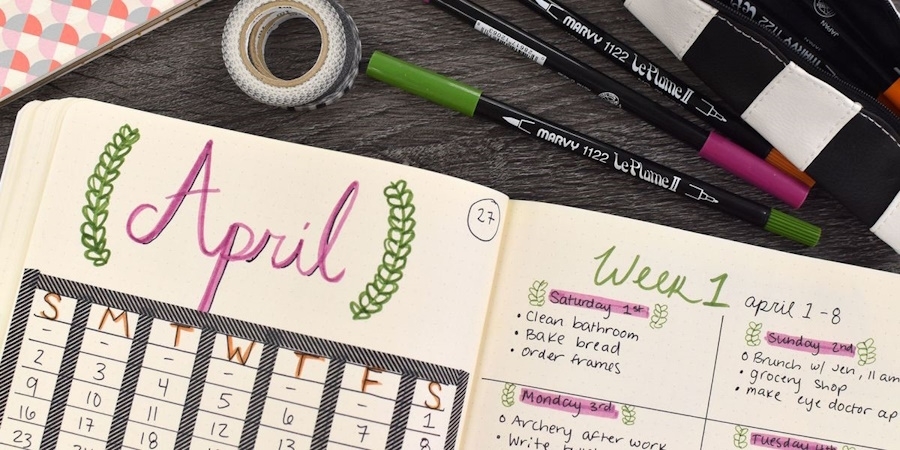 MARVY 1122 Le Plume II
MARVY 1122 Le Plume II
April
27
S M T W T F S
- - - - - - 1
2 3 4 5 6 7 8
9 10 11 12 13
16 17 18
23
Week 1
april 1-8
Saturday 1st
• Clean bathroom
• Bake bread
• Order frames
Sunday 2nd
o Brunch w/ Jen, 11am
• grocery shop
• make eye doctor ap
Monday 3rd
o Archery after work
• Write
Tuesday 4th